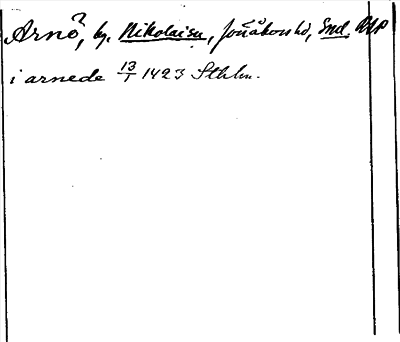 Arnö?, by. Nikolai sn, Jönåkers hd, Smd. RAP
i arnede 13/1 1423 Sthlm.